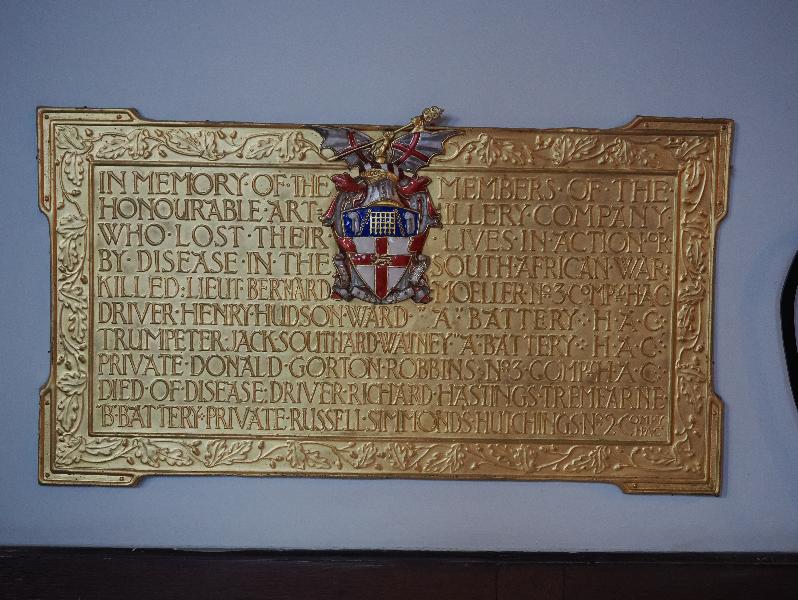 IN·MEMORY·OF·THE MEMBERS·OF·THE·
HONOURABLE·ART·ILLERY·COMPANY·
WHO·LOST·THEIR·LIVES·IN·ACTION·OR
BY·DISEASE·IN·THE·SOUTH·AFRICAN·WAR·
KILLED·LIEUT·BERNARD MOELLER·Nº3·COMPY·HAC
DRIVER·HENRY·HUDSON·WARD·"A"BATTERY·H·A·C·
TRUMPETER·JACK·SOUTHARD·WATNEY"A"BATTERY·H·A·C·
PRIVATE·DONALD·GORTON·ROBBINS·Nº3·COMPY·H·A·C·
DIED·OF·DISEASE·DRIVER·RICHARD·HASTINGS·TREMEARNE·
"B"BATTERY·PRIVATE·RUSSELL·SIMMONDS·HUTCHINGS·Nº2·COMPY HAC